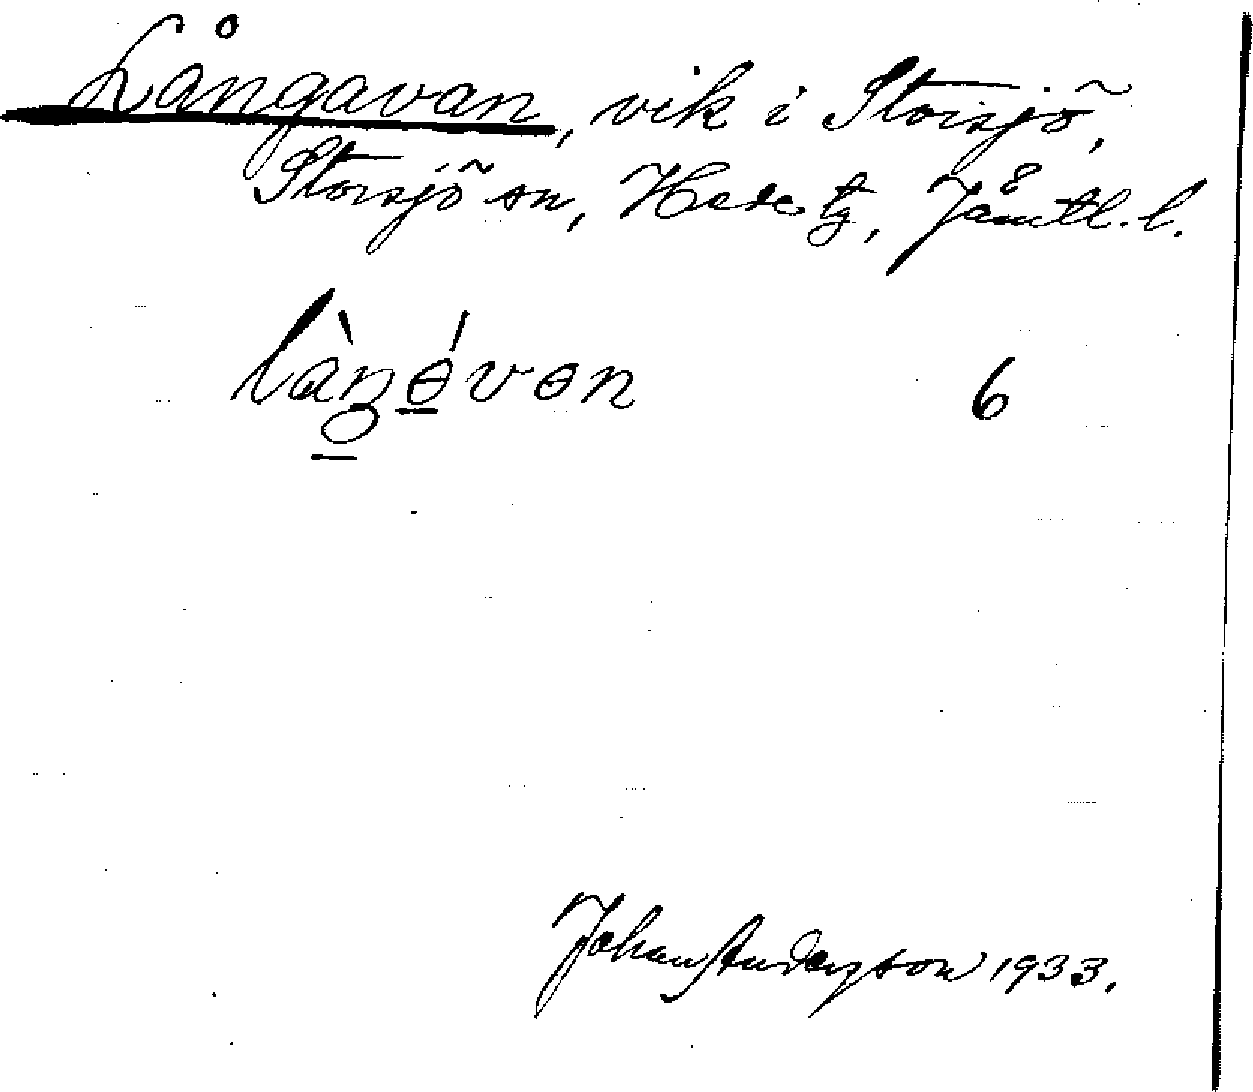 Långavan, vik i Storsjö,
Storsjö sn, Hede tg, Jämtl. l.
6
Johan Anderson 1933.